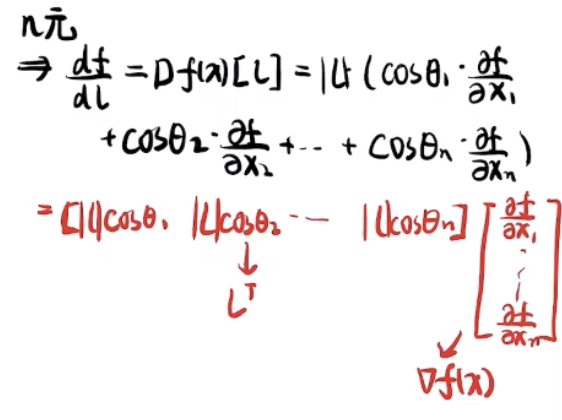 n元
⇒ df/dl = Df(x)[l] = |l| (cosθ₁ · ∂f/∂x₁
+ cosθ₂ · ∂f/∂x₂ + ··· + cosθn · ∂f/∂xn)
= [|l|cosθ₁ |l|cosθ₂ ··· |l|cosθn] [∂f/∂x₁ ⋮ ∂f/∂xn]
↓ lᵀ
↙ ∇f(x)